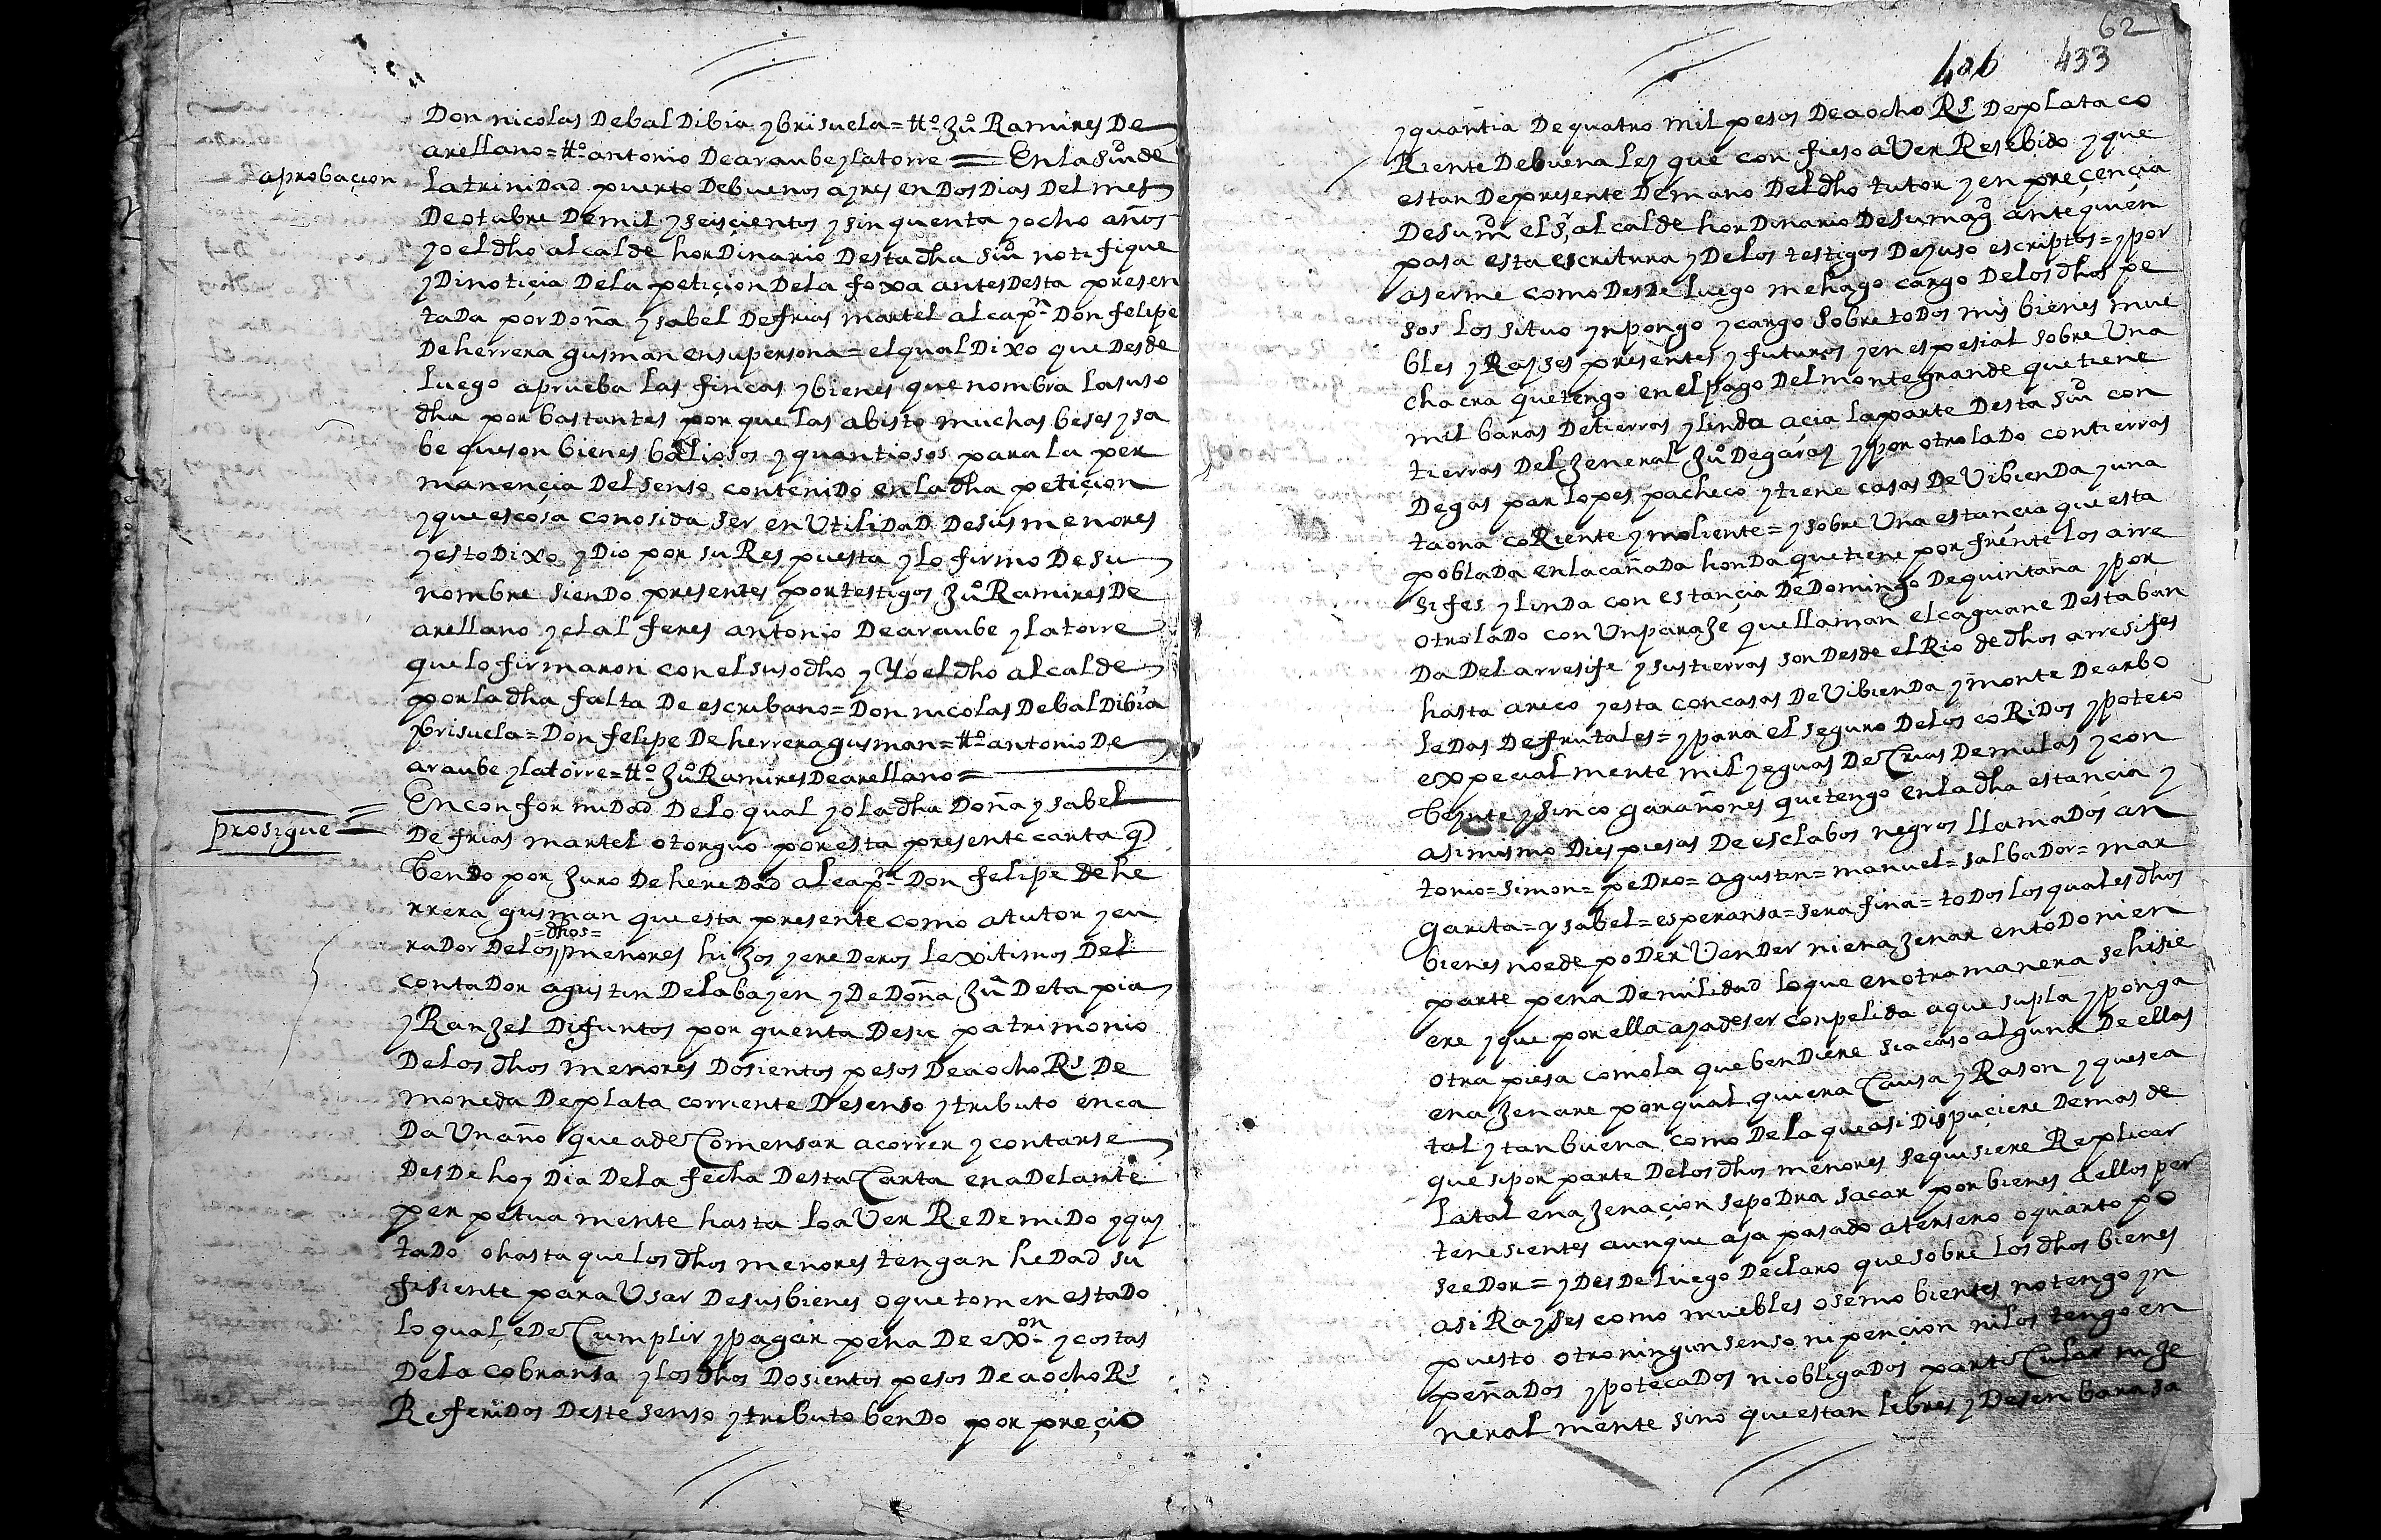 Don nicolas DebalDibia y brisuela = tt.º Juº Ramires De
arellano = tt.º antonio Dearaube y latorre = En la Siud de
aprobaçion
la trinidad puerto Debuenos ayres en Dos Dias Del mes
De otubre De mil y seisçientos y sinquenta y ocho años
yo el dho alcalde horDinario Desta dha siud notifique
y Di notiçia De la petiçion De la foxa antes Desta presen
taDa por Doña ysabel De frias martel al cappn Don felipe
De herrera gusman en su persona = el qual Dixo que Desde
luego aprueba las fincas y bienes que nombra la suso
dha por bastantes porque las a bisto muchas beses y sa
be que son bienes baliosos y quantiosos para la per
manençia Del senso contenido en la dha petiçion
y que es cosa conosida ser en Utilidad De sus menores
y esto Dixo y Dio por su Respuesta y lo firmo De su
nombre siendo presentes por testigos Juº Ramires De
arellano y el alferes antonio De araube y latorre
que lo firmaron con el susodho y Yo el dho alcalde
por la dha falta De escribano = Don nicolas De balDibia
y brisuela = Don felipe De herrera gusman = tt.º antonio De
araube y latorre = tt.º Juº Ramires De arellano =
prosigue =
En conformidad De lo qual yo la dha Doña ysabel
De frias martel otorguo por esta presente carta q
bendo por Juro De hereDad al cappn Don felipe de he
rrera gusman que esta presente como a tutor y cu
=dhos=
raDor De los menores hiJos y ereDeros lexitimos Del
contaDor agustin Delabayen y De Doña Juª De tapia
y RanJel Difuntos por quenta De su patrimonio
De los dhos menores Dosientos pesos De a ocho Rs De
moneda De plata corriente De senso y tributo en ca
Da Un año que a de Comensar a correr y contarse
DesDe hoy Dia De la fecha Desta Carta en aDelante
perpetuamente hasta lo aVer ReDemiDo y quy
taDo o hasta que los dhos menores tengan heDad su
fisiente para Usar De sus bienes o que tomen estaDo
lo qual e De Cumplir y pagar pena De exon y costas
De la cobransa y los dhos Dosientos pesos De a ocho Rs
Referidos Deste senso y tributo bendo por preçio
62
406 433
y quantia De quatro mil pesos De a ocho Rs De plata co
Riente De buena ley que confieso aVer Resebido y que
estan De presente De mano Del dho tutor y en preçençia
De su md el sr alcalde horDinario De su magd ante quien
pasa esta escritura y De los testigos De yuso escriptos = y por
aserme como DesDe luego me hago cargo De los dhos pe
sos los situo ynpongo y cargo sobre toDos mis bienes mue
bles y Rayses presentes y futuros y en espesial sobre Una
chacra que tengo en el pago Del monte grande que tiene
mil baras De tierras y linda açia la parte Desta siud con
tierras Del Jeneral Juº De garay y por otro laDo con tierras
De gaspar lopes pacheco y tiene casas De VibienDa y una
taona coRiente y moliente = y sobre Una estancia que esta
poblaDa en la cañaDa honDa que tiene por frente los arre
sifes y linDa con estançia De Domingo De quintana y por
otro laDo con Un paraJe que llaman el caguane Desta ban
Da Del arresife y sus tierras son Desde el Rio de dhos arresifes
hasta areco y esta con casas De VibienDa y monte De arbo
leDas De frutales = y para el seguro De los coRiDos ypoteco
expecialmente mil yeguas De Crias De mulas y con
beynte y sinco garañones que tengo en la dha estancia y
asimismo Dies piesas De esclabos negros llamaDos an
tonio = simon = peDro = agustin = manuel = salbaDor = mar
garita = ysabel = esperansa = serafina = toDos los quales dhos
bienes no e de poDer VenDer ni enaJenar en toDo ni en
parte pena De nuliDad lo que en otra manera se hisie
ere y que por ella aya de ser conpelida a que supla y ponga
otra piesa como la que benDiere si acaso alguna De ellas
enaJenare por qualquiera Causa y Rason y que sea
tal y tan buena como De la que asi Dispuçiere Demas de
que si por parte De los dhos menores se quisiere Replicar
la tal enaJenaçion se poDra sacar por bienes a ellos per
tenesientes aunque aya pasado a tersero o quarto po
seeDor = y DesDe luego Declaro que sobre los dhos bienes
asi Rayses como muebles o semobientes no tengo yn
puesto otro ningun senso ni pencion ni los tengo en
peñaDos ypotecaDos ni obligaDos partiCular ni Je
neralmente sino que estan libres y Desenbarasa